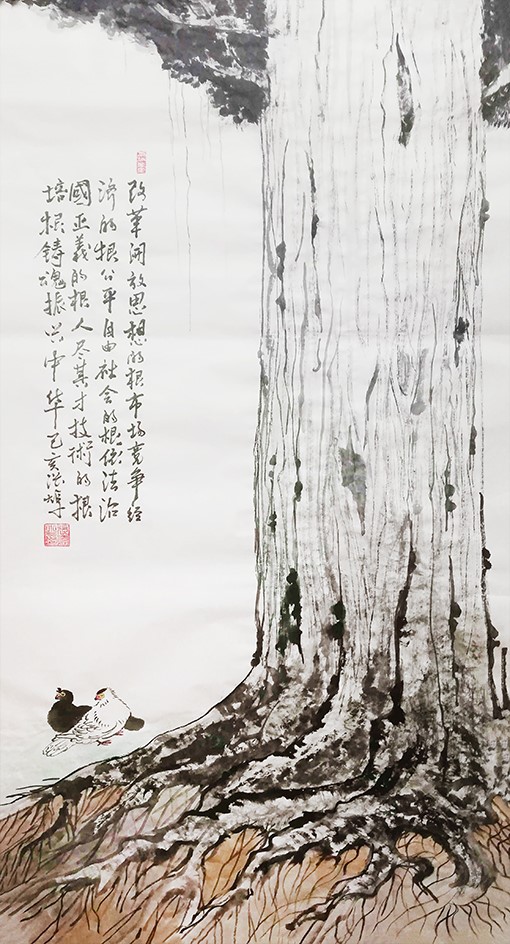 改革開放思想的根市场竞争经
济的根公平自由社会的根依法治
國正義的根人尽其才技術的根
培根铸魂振兴中华己亥